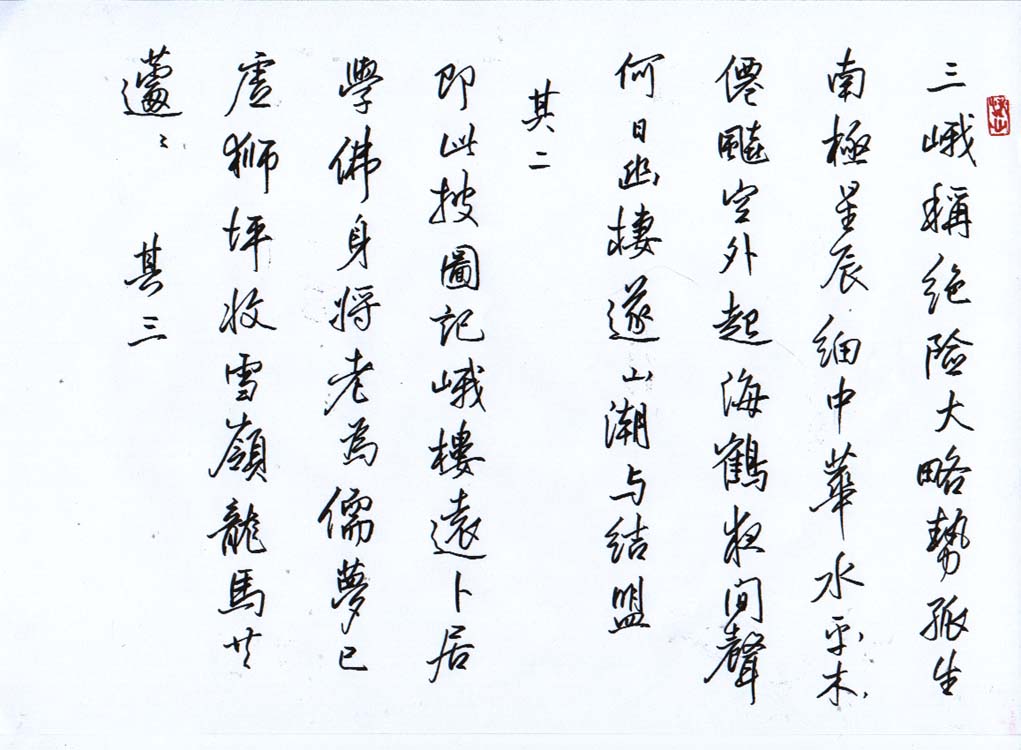 三峨稱絕險大略勢孤生
南極星辰細中華水平木
僊飈空外起海鶴夜間聲
何日幽棲遂山潮与結盟
其二
即此披圖記峨樓遠卜居
學佛身將老為儒夢已
虛獅坪收雪嶺龍馬共
蘧〻 其三